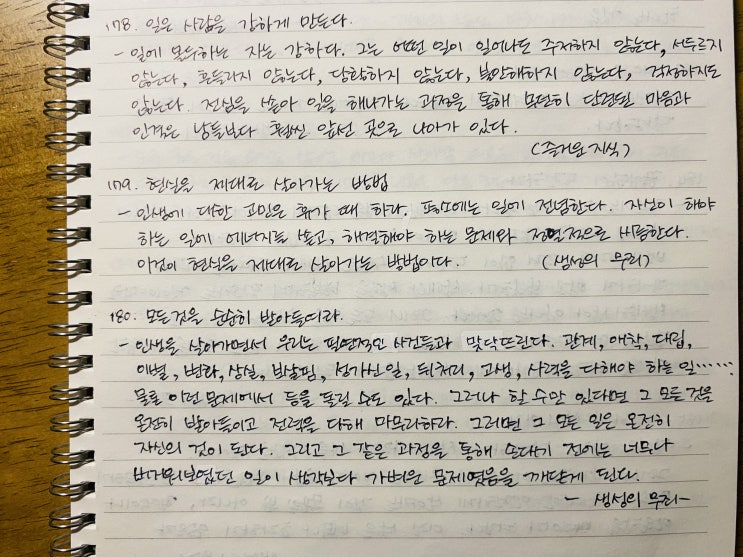 178. 일은 사람을 강하게 만든다.
- 일에 몰두하는 자는 강하다. 그는 어떤 일이 일어나도 주저하지 않는다, 서두르지
않는다, 흔들리지 않는다, 당황하지 않는다, 불안해하지 않는다, 걱정하지도
않는다. 진심을 쏟아 일을 해나가는 과정을 통해 부단히 단련된 마음과
인격은 남들보다 훨씬 앞선 곳으로 나아가 있다.
(즐거운 지식)
179. 현실을 제대로 살아가는 방법
- 인생에 대한 고민은 휴가 때 하라. 평소에는 일에 전념한다. 자신이 해야
하는 일에 에너지를 쏟고, 해결해야 하는 문제와 정열적으로 씨름한다.
이것이 현실을 제대로 살아가는 방법이다. (생성의 무리)
180. 모든것을 순순히 받아들여라.
- 인생을 살아가면서 우리는 필연적인 사건들과 맞닥뜨린다. 관계, 애착, 대립,
이별, 변화, 상실, 보살핌, 성가신 일, 뒤처리, 고생, 사력을 다해야 하는 일……
물론 이런 문제에서 등을 돌릴 수도 있다. 그러나 할 수만 있다면 그 모든 것을
온전히 받아들이고 전력을 다해 마무리하라. 그러면 그 모든 일은 온전히
자신의 것이 된다. 그리고 그 같은 과정을 통해 손대기 전에는 너무나
버거워보였던 일이 생각보다 가벼운 문제였음을 깨닫게 된다.
- 생성의 무리-